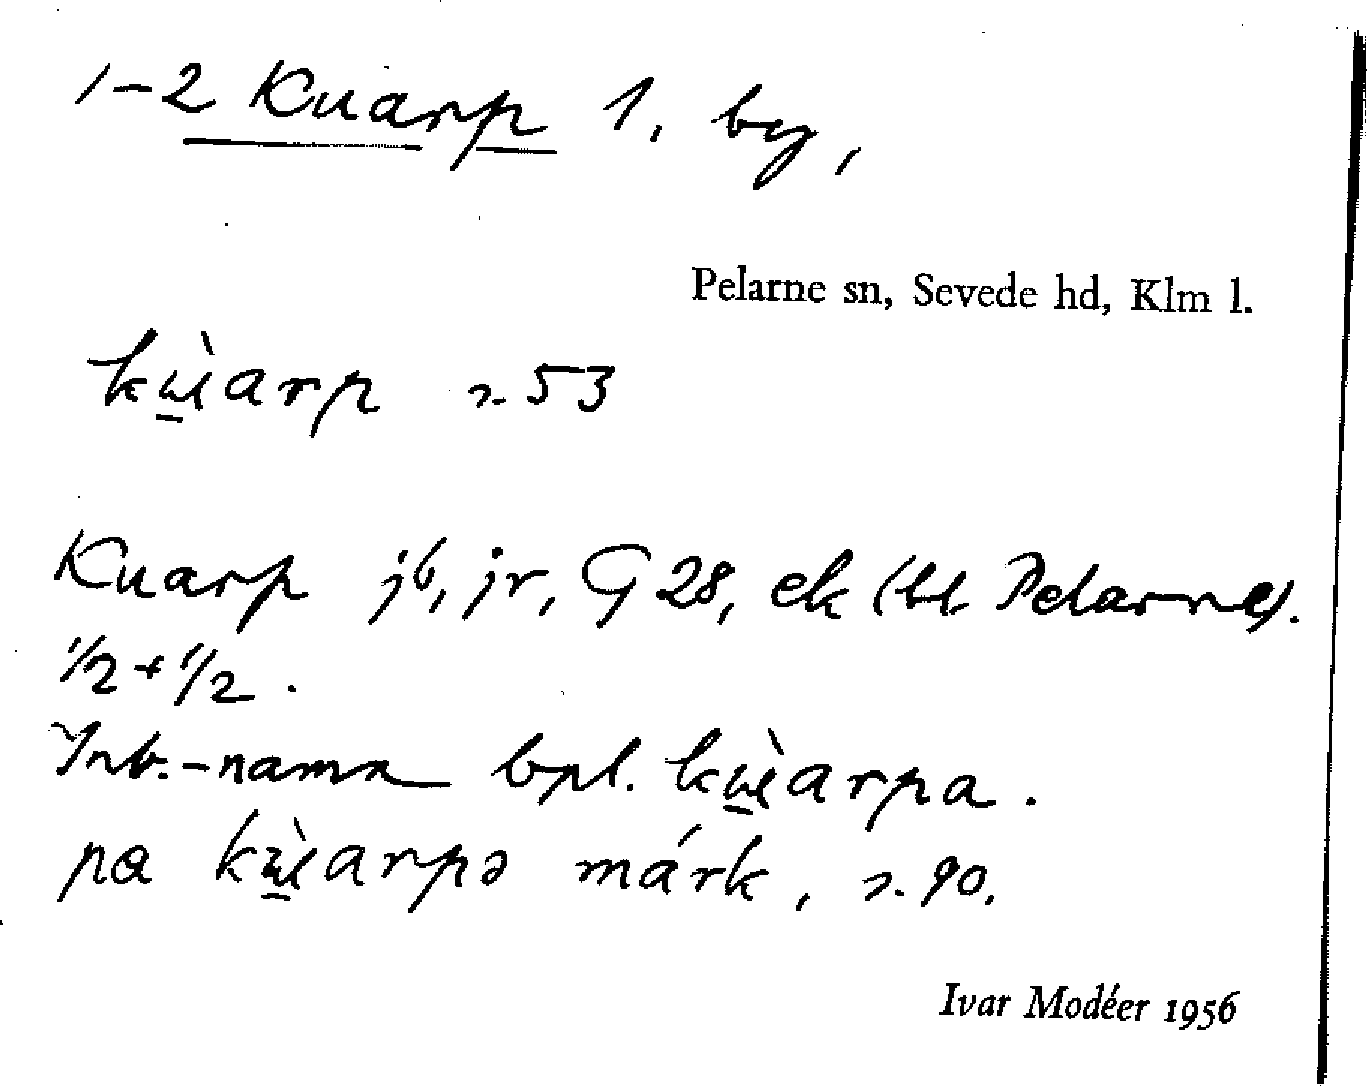 1-2 Kuarp 1, by,
Pelarne sn, Sevede hd, Klm l.
kɯ̠̀arp z. 53
Kuarp jb, jr, G 28, ek (bl Pelarne).
1/2 + 1/2.
Inb.-namn bpl. kɯ̠̀arpa.
pa kɯ̠̀arpə márk, z. 90.
Ivar Modéer 1956